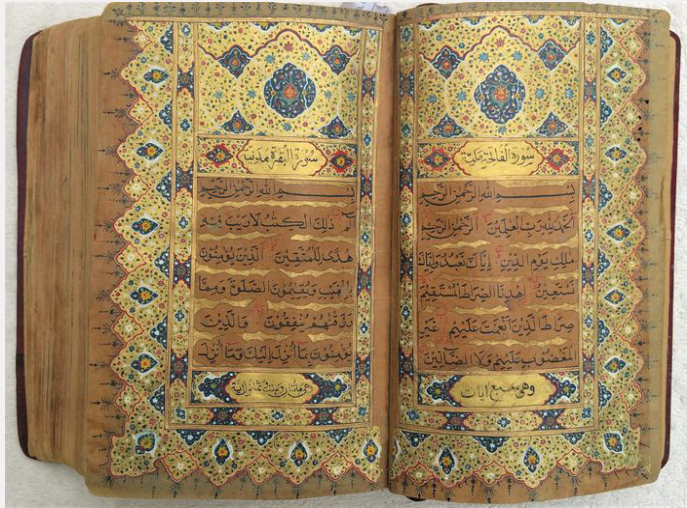 سورة الفاتحة مكية
بسم الله الرحمن الرحيم
الحمد لله رب العلمين الرحمن الرحيم
ملك يوم الدين اياك نعبد واياك
نستعين اهدنا الصراط المستقيم
صراط الذين انعمت عليهم غير
المغضوب عليهم ولا الضالين
وهي سبع ايات
سورة البقرة مدنية
بسم الله الرحمن الرحيم
الم ذلك الكتب لا ريب فيه
هدى للمتقين الذين يؤمنون
بالغيب ويقيمون الصلوة ومما
رزقنهم ينفقون والذين
يؤمنون بما انزل اليك وما انزل